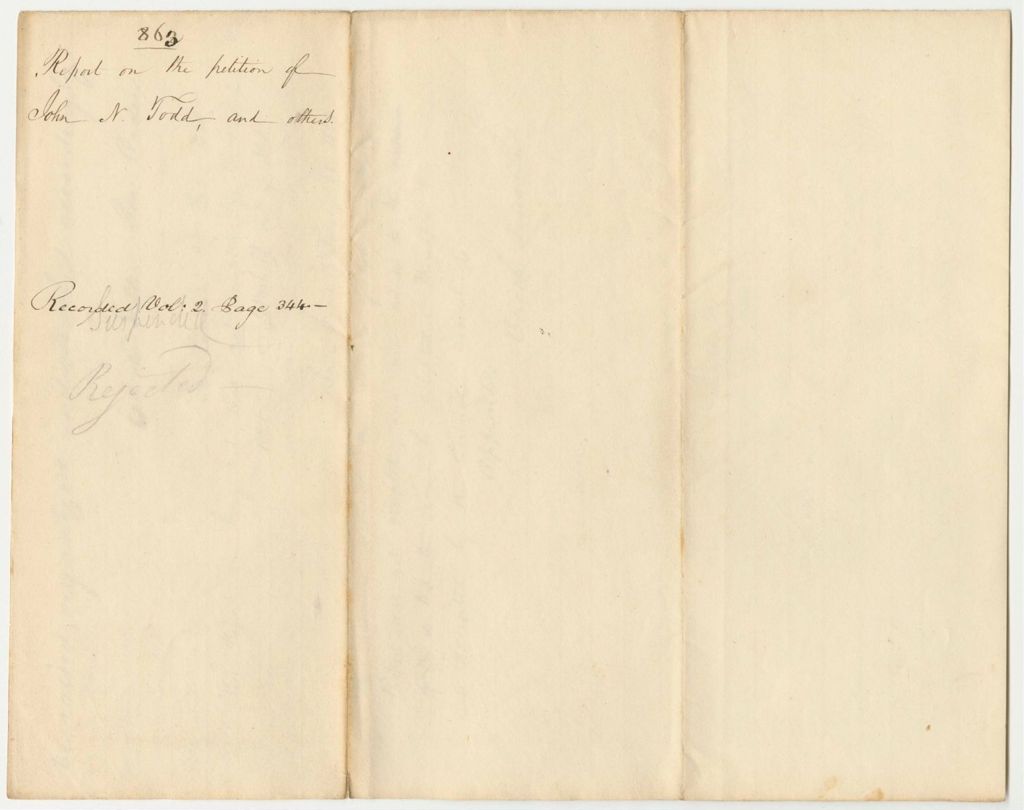 863
Report on the petition of
John N. Todd, and others.
Recorded Vol: 2. Page 344—
Suspended
Rejected —